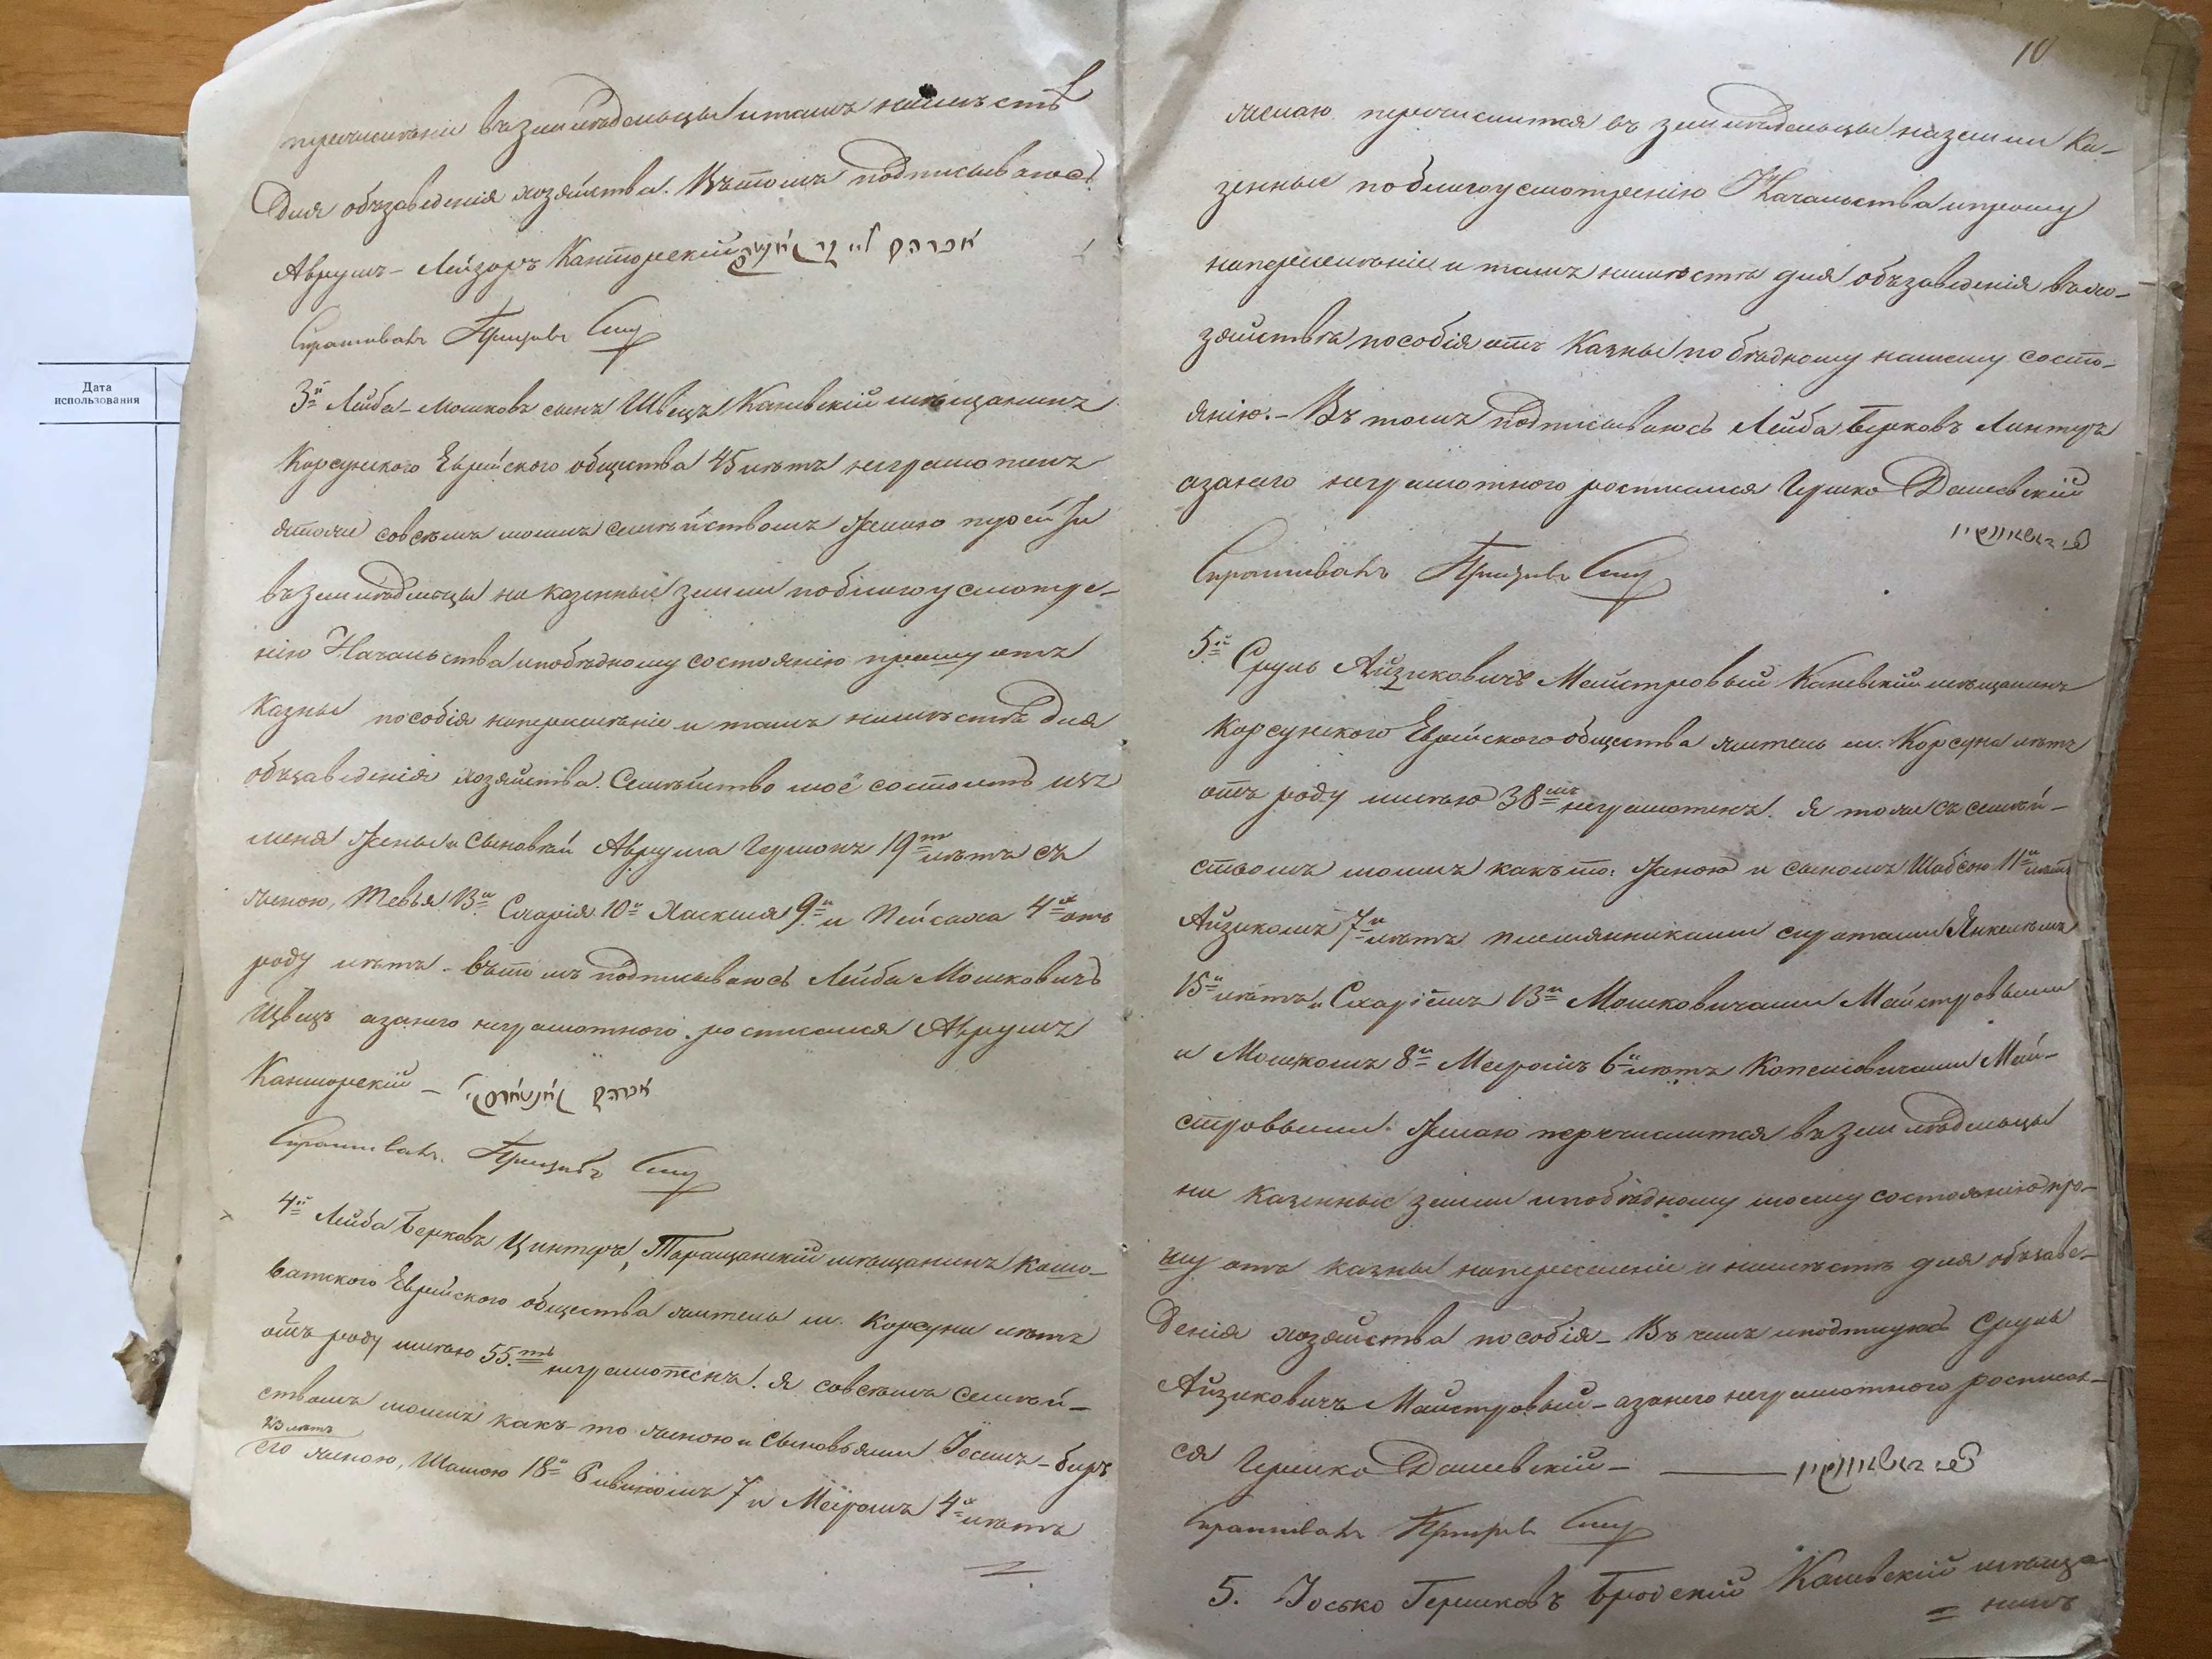 Дата
использования
перечисленіи въ земледельцы и тамъ на мѣстѣ
для обзаведенія хозяйства. Въ томъ подписываюсь
Аврумъ-Лейзоръ Канторскій אברהם
Спрашивалъ
3й Лейба-Мошковъ сынъ Швецъ Каневскій мѣщанинъ
Корсунского Еврейского общества 45 лѣтъ неграмотенъ
я тоже со всѣмъ моимъ семѣйствомъ желаю
въ земледѣльцы на казенные земли по благоусмотре-
нію Начальства и по бѣдному состоянію прошу отъ
Казны пособія на переселѣніе и тамъ на мѣстѣ для
объзаведенія хозяйства. Семѣйство моё состоитъ изъ
меня жены и сыновѣй Аврума Гершонъ 19ти лѣтъ съ
женою, Тевья 13и Схарія 10и Хаскеля 9и и Пейсаха 4хъ отъ
роду лѣтъ - въ томъ подписываюсь Лейба Мошковичъ
Швецъ а за него неграмотного росписался Аврумъ
Канторскій - אברהם קאנטארסקי
Спрашивалъ
4й Лейба Берковъ Цинтеръ, Таращанскій мѣщанинъ Кошо-
ватского Еврейского общества житель м. Корсуни лѣтъ
отъ роду имѣю 55ть неграмотенъ. Я со всѣмъ семѣй-
ствомъ моимъ какъ-то женою и сыновьями Іосемъ-Беръ
23 лѣтъ
его женою, Шаею 18и Ривиномъ 7и Меѣромъ 4хъ лѣтъ
10
желаю перечислится въ земледѣльцы на земли Ка-
зенные по благоусмотренію Начальства и прошу
на переселѣніе и тамъ на мѣстѣ для объзаведенія въ хо-
зяйствѣ пособія отъ Казны по бѣдному нашему состо-
янію. - Въ томъ подписываюсь Лейба Берковъ Линтеръ
а за него неграмотного росписался Гершко Дашевскій
Спрашивалъ
5й Сруль Айзиковичъ Майстровый Каневскій мѣщанинъ
Корсунского Еврейского общества житель м. Корсуна лѣтъ
отъ роду имѣю 38мъ неграмотенъ. Я тоже съ семѣй-
ствомъ моимъ какъ то: женою и сыномъ Шабсою 11и лѣтъ
Айзикомъ 7и лѣтъ племянниками сиротами Янкелѣмъ
15и лѣтъ и Схаріемъ 13и Мошковичами Майстровыми
и Мошкомъ 8и Меером 6и лѣтъ Копелiовичами Май-
стровыми. Желаю перечислится въ земледѣльцы
на казенные земли и по бѣдному моему состоянію про-
шу отъ казны на переселеніе и на мѣстѣ для объзаве-
денія хозяйства пособія - Въ чемъ и подпишусь Сруль
Айзиковичъ Майстровый - а за него неграмотного росписал-
ся Гершко Дашевскій -
Спрашивалъ
5. Іосько Гершковъ Бродскій Каневскій мѣща-
нинъ